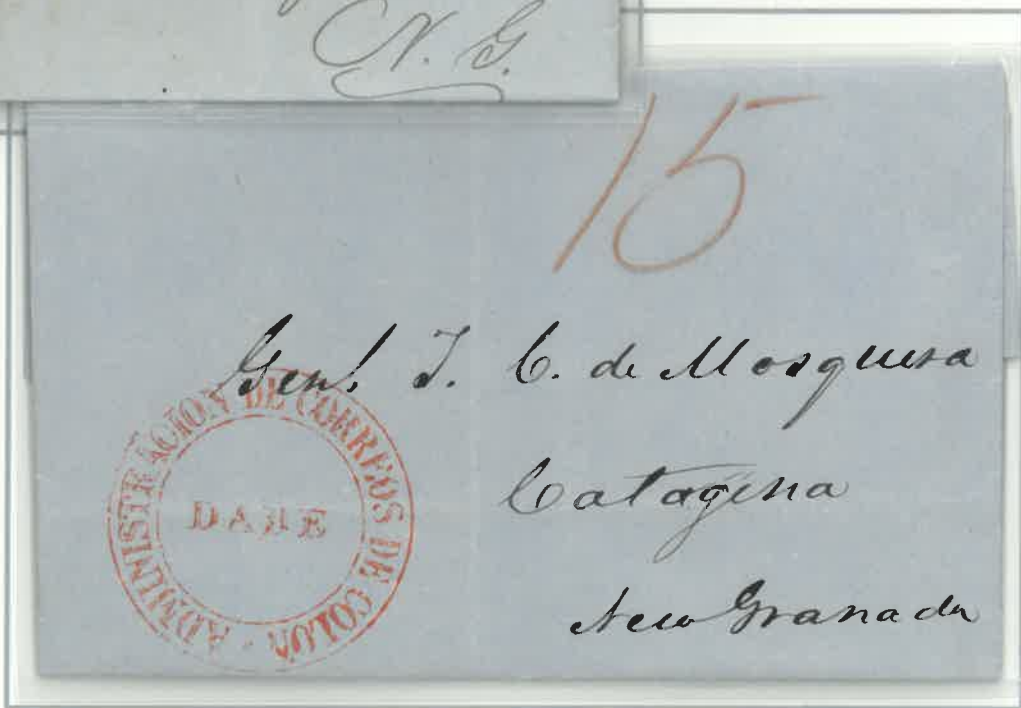 N. G.
15
Genl. T. C. de Mosquera
Catagena
New Granada
ADMINISTRACION DE CORREOS DE COLON
DABE